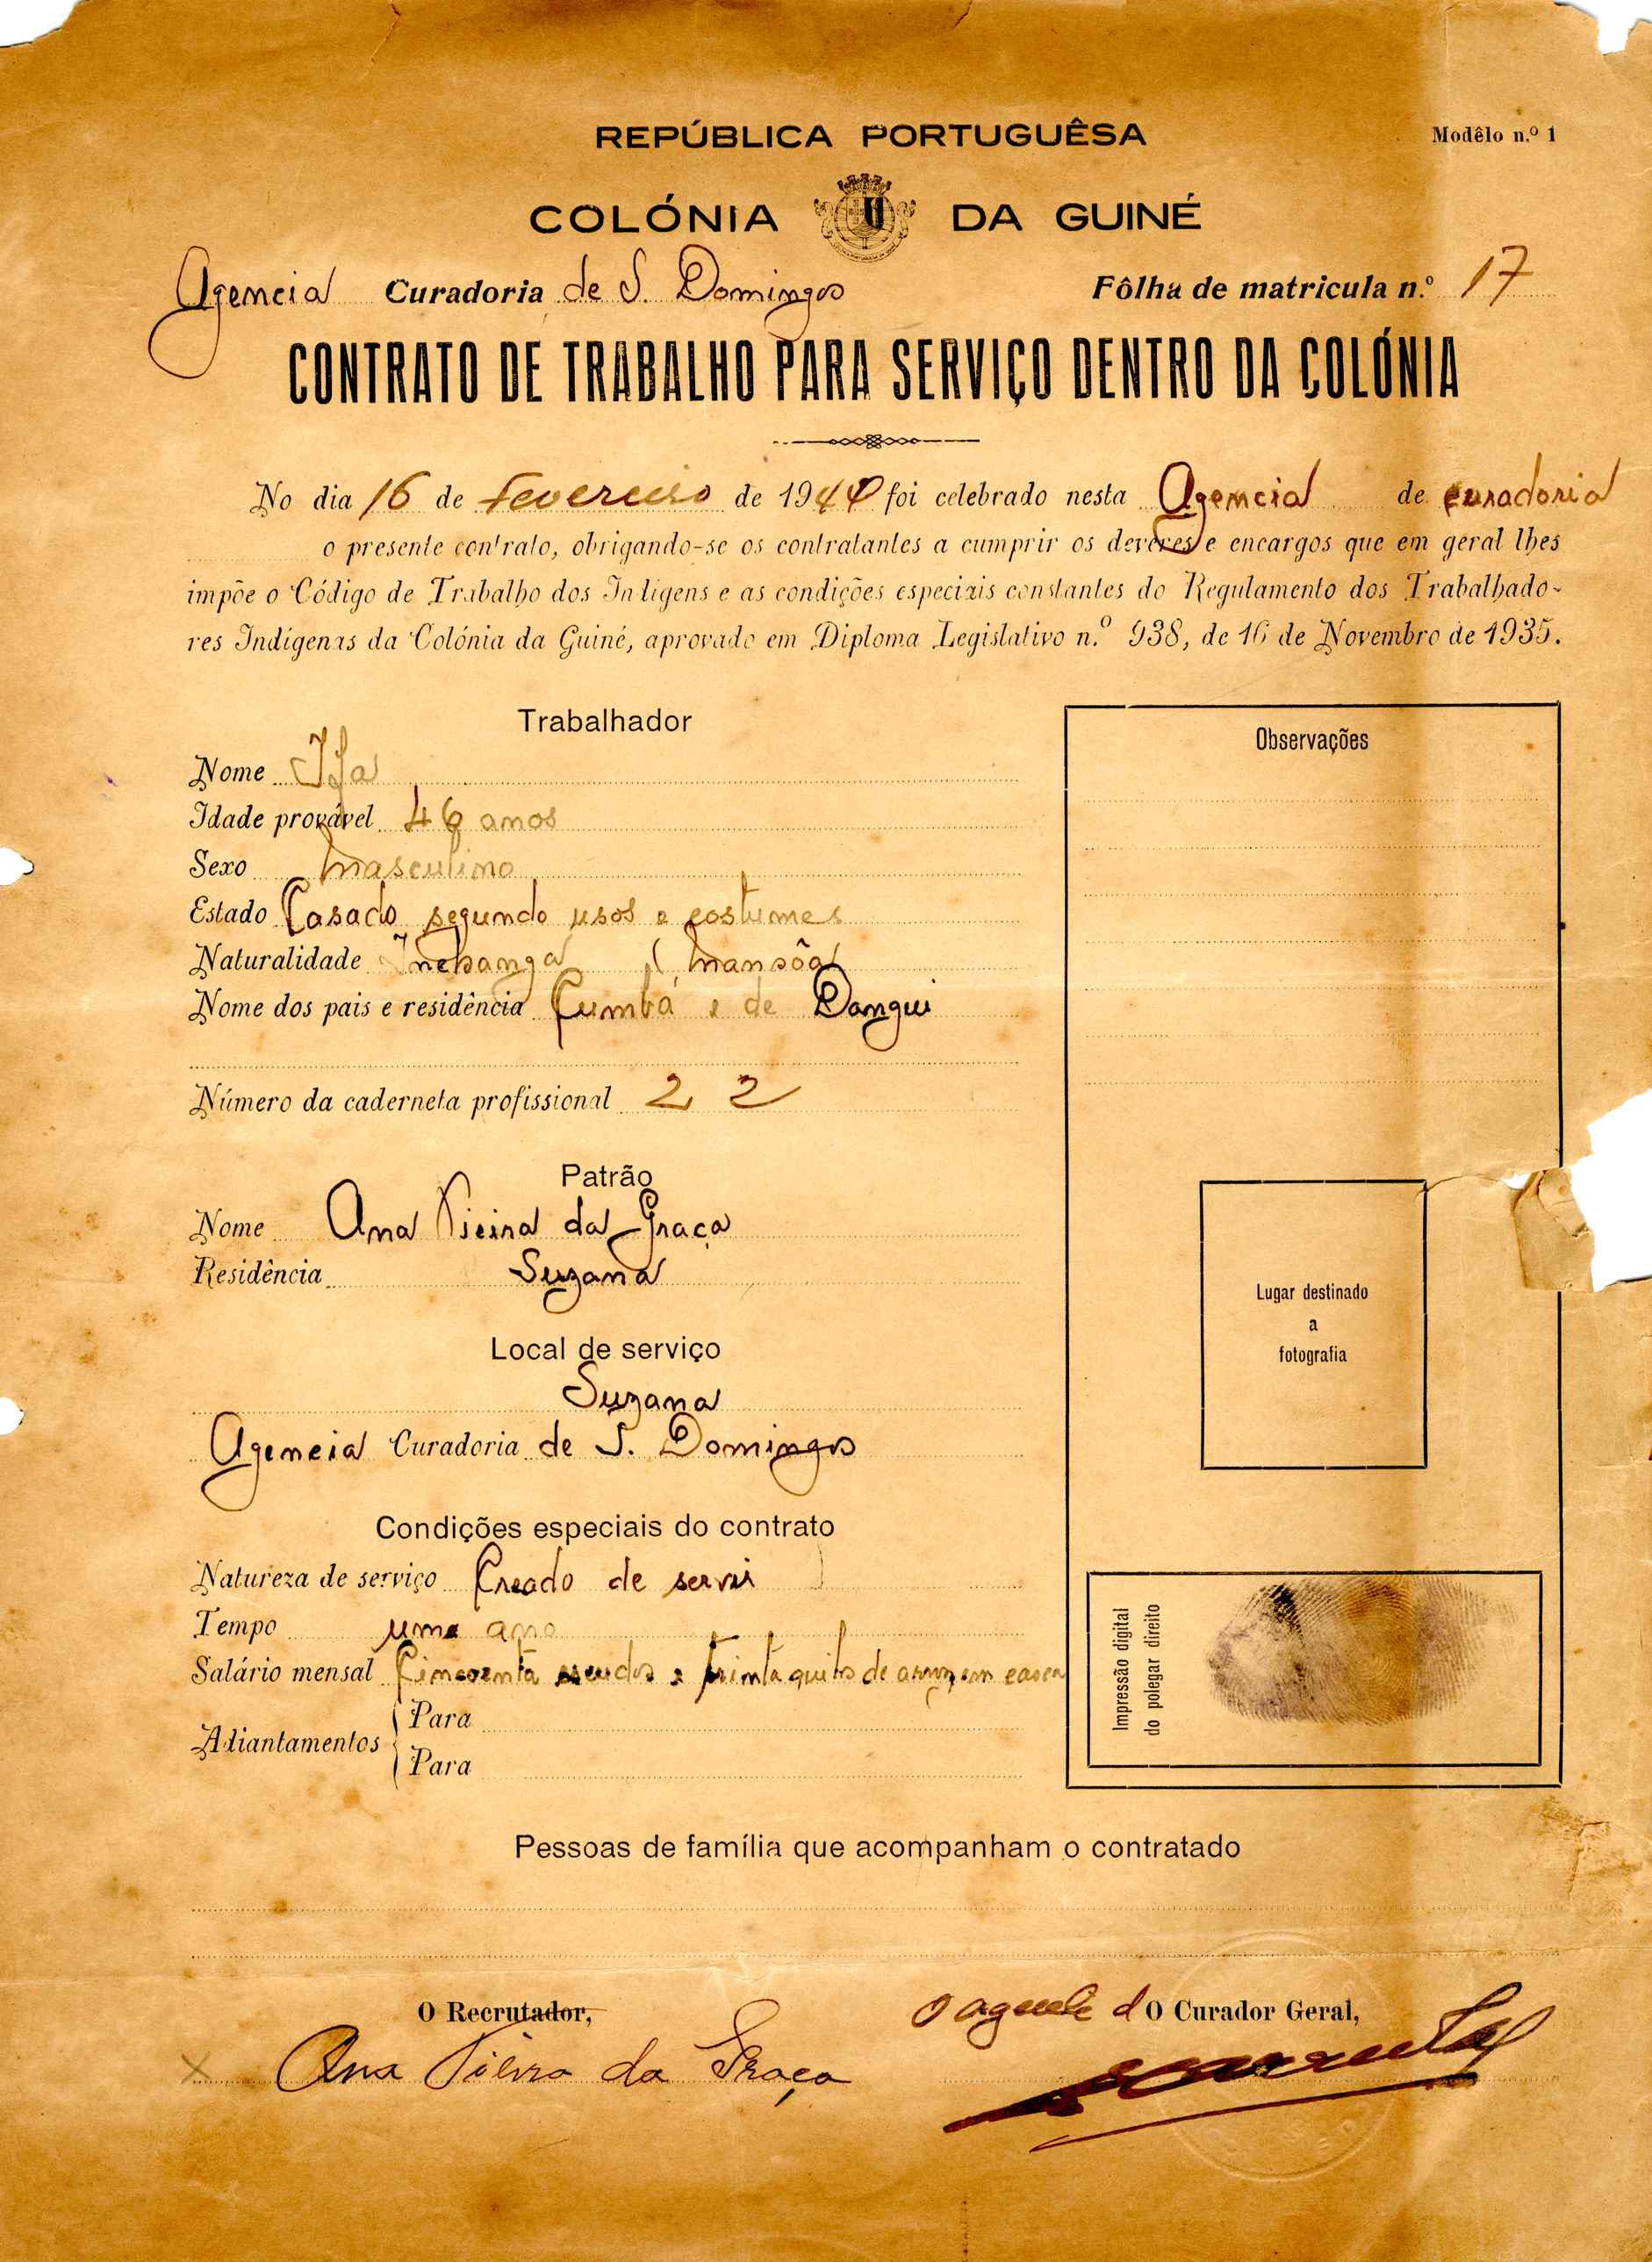 REPÚBLICA PORTUGUÊSA
Modêlo n.º 1
COLÓNIA DA GUINÉ
Agencia Curadoria de S. Domingos
Fôlha de matricula n.º 17
CONTRATO DE TRABALHO PARA SERVIÇO DENTRO DA COLÓNIA
No dia 16 de Fevereiro de 194 foi celebrado nesta Agencia de curadoria
o presente contrato, obrigando-se os contratantes a cumprir os deveres e encargos que em geral lhes
impõe o Código de Trabalho dos Indígens e as condições especiais constantes do Regulamento dos Trabalhado-
res Indígenas da Colónia da Guiné, aprovado em Diploma Legislativo n.º 938, de 16 de Novembro de 1935.
Trabalhador
Nome
Idade provável 46 anos
Sexo Masculino
Estado Casado segundo usos e costumes
Naturalidade (Mansôa
Nome dos pais e residência Cumbá e de Dangui
Número da caderneta profissional 22
Patrão
Nome Ana Vieira da Graça
Residência Suzana
Local de serviço
Suzana
Agencia Curadoria de S. Domingos
Condições especiais do contrato
Natureza de serviço Creado de servir
Tempo um ano
Salário mensal Cincoenta escudos e trinta quilos de arroz em casca
Adiantamentos
Para
Para
Observações
Lugar destinado
a
fotografia
Impressão digital
do polegar direito
Pessoas de família que acompanham o contratado
O Recrutador,
Ana Vieira da Graça
O agente d O Curador Geral,